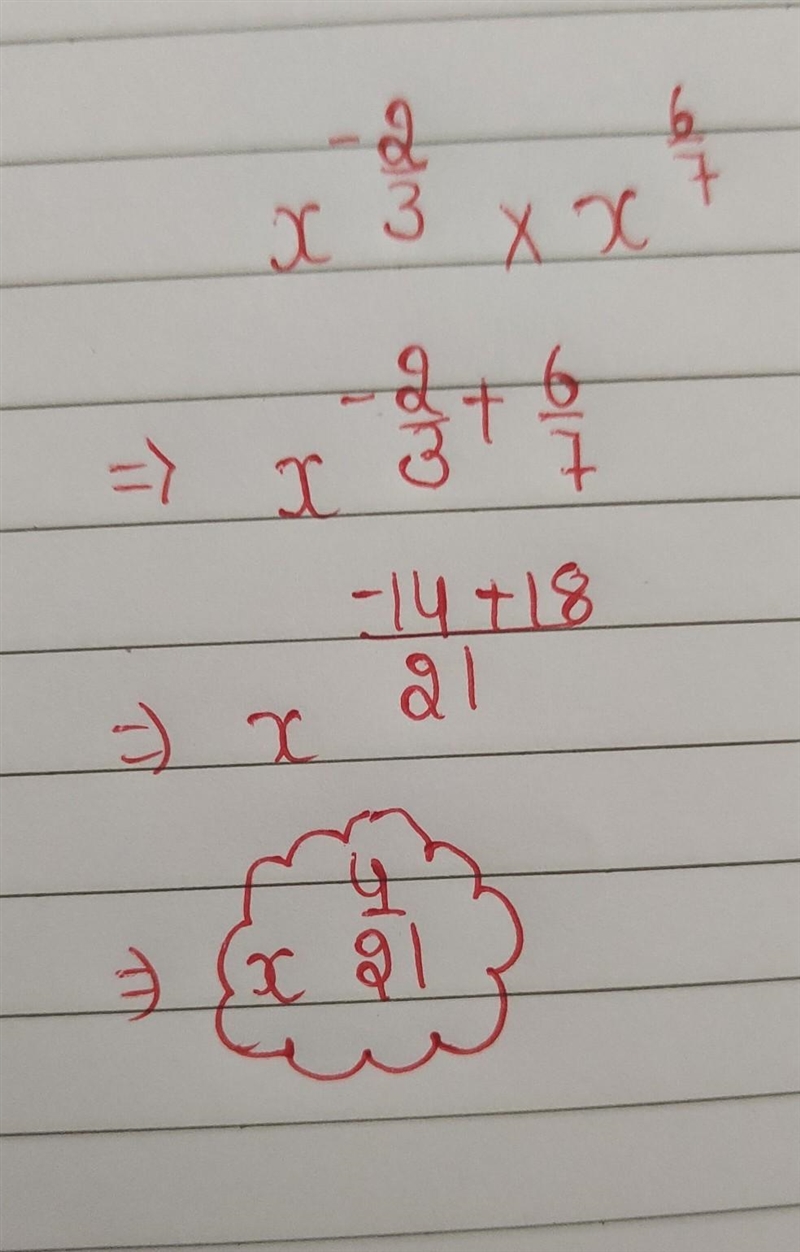 x^{-2/3} × x^{6/7}
⇒ x^{-2/3 + 6/7}
⇒ x^{(-14 + 18)/21}
⇒ x^{4/21}